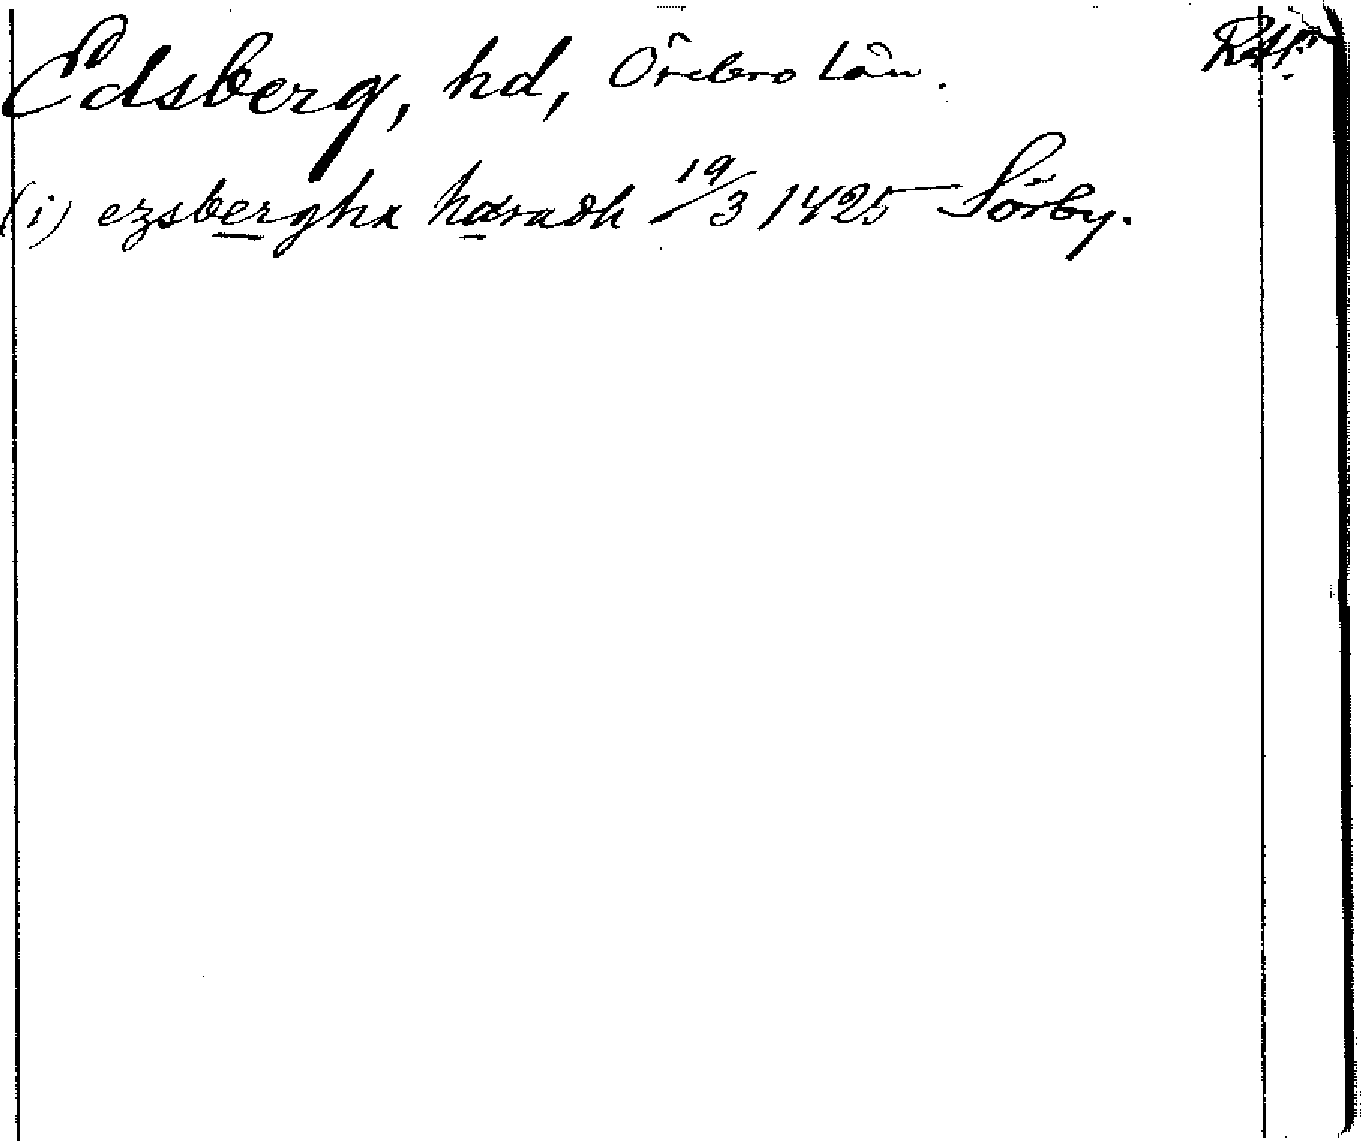 Edsberg, hd, Örebro län.
(i) ezsbergha haradh 19/3 1425 Sörby.